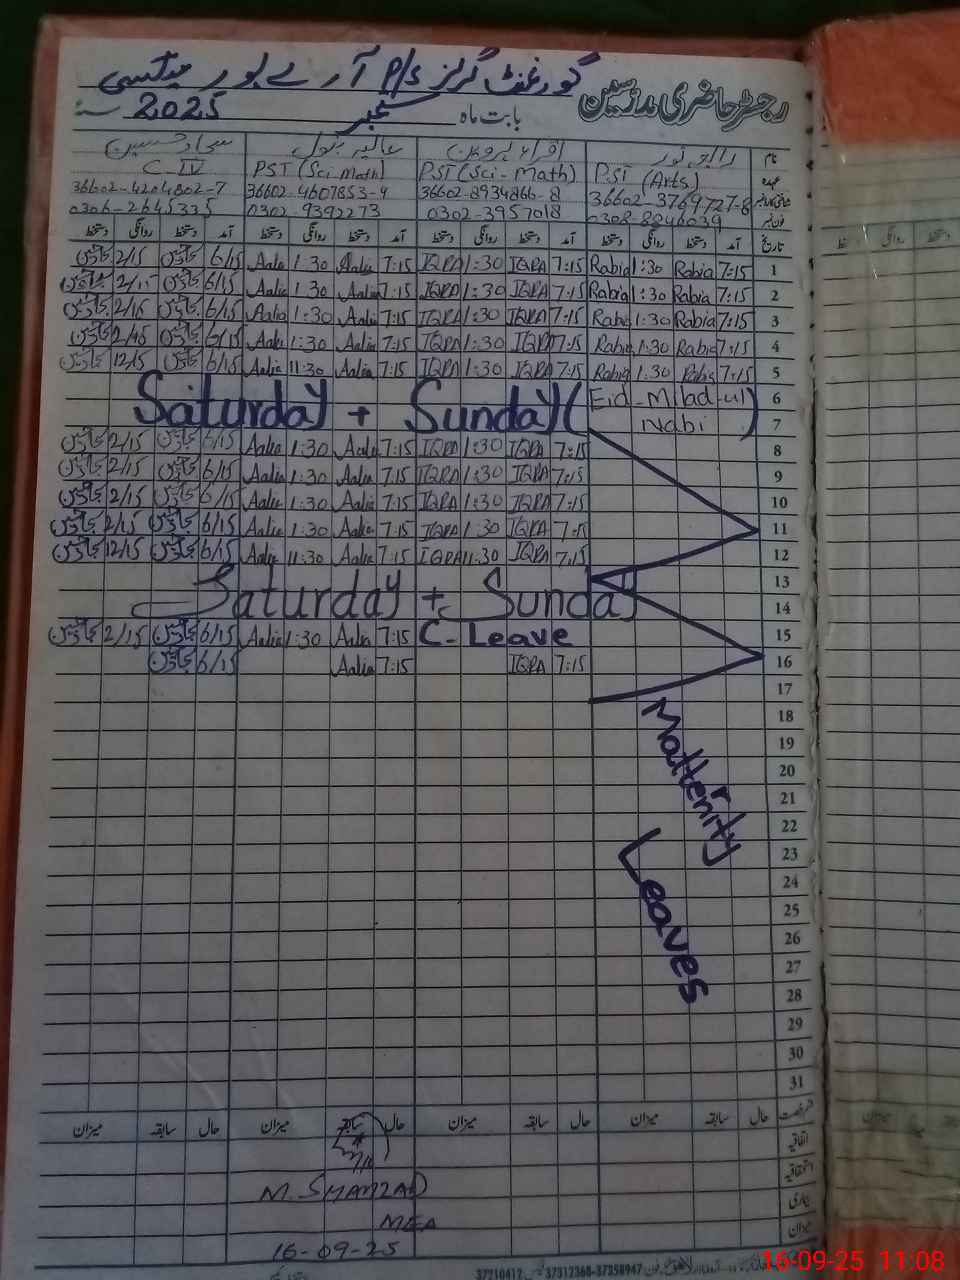 رجسٹر حاضری مدرسین گورنمنٹ گرلز P/S آر ے پور میلسی
بابت ماہ ستمبر 2025 سنہ
نام رابعہ نور اقراء پروین عالیہ بتول سجاد حسین
عہدہ PST (Arts) PST (Sci-Math) PST (Sci Math) C-IV
شناختی کارڈ نمبر 36602-3769727-8 36602-8934866-8 36602-4607853-4 36602-4204802-7
فون نمبر 0308-8846039 0302-3957018 0302-9392273 0306-2645335
تاریخ آمد دستخط روانگی دستخط آمد دستخط روانگی دستخط آمد دستخط روانگی دستخط آمد دستخط روانگی دستخط
1 7:15 Rabia 1:30 Rabia 7:15 IQRA 1:30 IQRA 7:15 Aalia 1:30 Aalia 6/15 2/15
2 7:15 Rabia 1:30 Rabia 7:15 IQRA 1:30 IQRA 7:15 Aalia 1:30 Aalia 6/15 2/15
3 7:15 Rabia 1:30 Rabia 7:15 IQRA 1:30 IQRA 7:15 Aalia 1:30 Aalia 6/15 2/15
4 7:15 Rabia 1:30 Rabia 7:15 IQRA 1:30 IQRA 7:15 Aalia 1:30 Aalia 6/15 2/15
5 7:15 Rabia 1:30 Rabia 7:15 IQRA 1:30 IQRA 7:15 Aalia 11:30 Aalia 6/15 12/15
6 Saturday + Sunday (Eid-Milad-ul
7 Nabi)
8 7:15 IQRA 1:30 IQRA 7:15 Aalia 1:30 Aalia 6/15 2/15
9 7:15 IQRA 1:30 IQRA 7:15 Aalia 1:30 Aalia 6/15 2/15
10 7:15 IQRA 1:30 IQRA 7:15 Aalia 1:30 Aalia 6/15 2/15
11 7:15 IQRA 1:30 IQRA 7:15 Aalia 1:30 Aalia 6/15 2/15
12 7:15 IQRA 11:30 IQRA 7:15 Aalia 11:30 Aalia 6/15 12/15
13 Saturday + Sunday
14
15 C-Leave 7:15 Aalia 1:30 Aalia 6/15 2/15
16 7:15 IQRA 7:15 Aalia 6/15
17
18 Matternity
19
20
21
22
23 Leaves
24
25
26
27
28
29
30
31
رخصت حال سابقہ میزان حال سابقہ میزان حال سابقہ میزان حال سابقہ میزان
اتفاقیہ
استحقاقیہ
بیماری
میزان
M. SHAHZAD
MEA
16-09-25
37312368-37358947
37210417
16-09-25 11:08